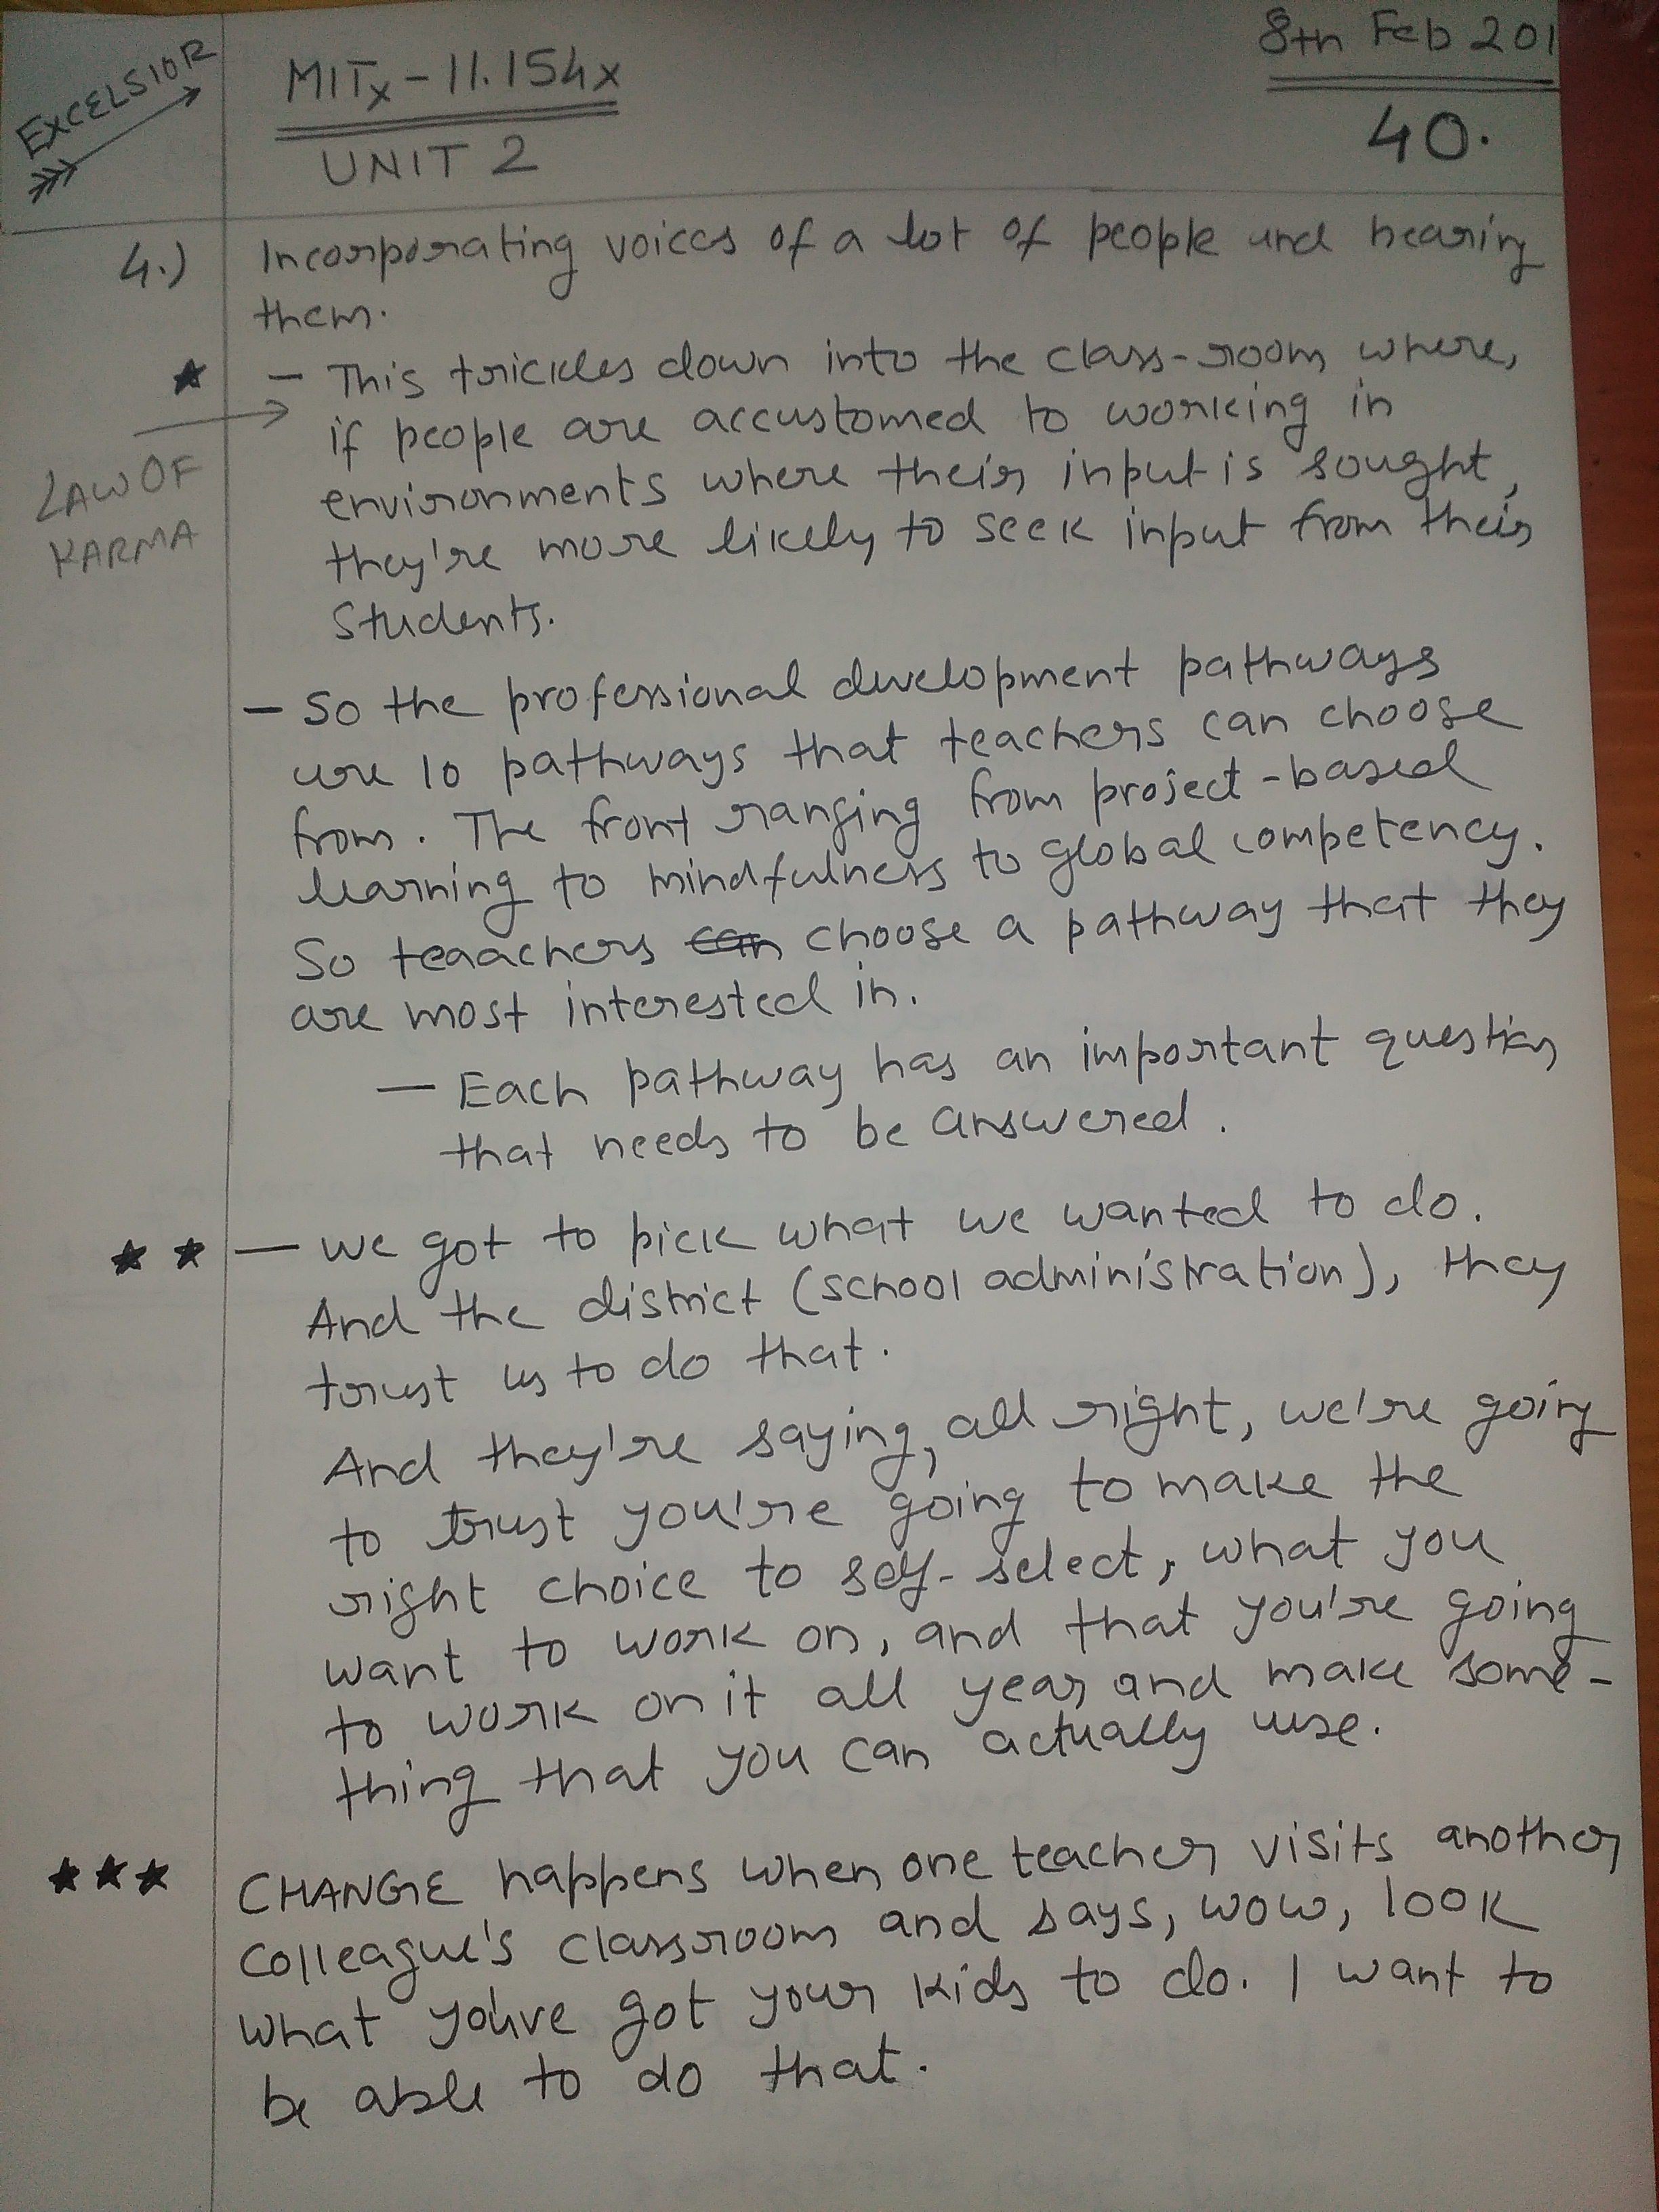 EXCELSIOR
MITx - 11.154x
UNIT 2
8th Feb 201
40.
4.) Incorporating voices of a lot of people and hearing
them.
★ - This trickles down into the class-room where,
if people are accustomed to working in
LAW OF
KARMA
environments where their input is sought,
they're more likely to seek input from their
students.
- So the professional development pathways
are 10 pathways that teachers can choose
from. The front ranging from project-based
learning to mindfulness to global competency.
So teaachers can choose a pathway that they
are most interested in.
- Each pathway has an important question
that needs to be answered.
★ ★ - We got to pick what we wanted to do.
And the district (school administration), they
trust us to do that.
And they're saying, all right, we're going
to trust you're going to make the
right choice to self-select, what you
want to work on, and that you're going
to work on it all year and make some-
thing that you can actually use.
★★★ CHANGE happens when one teacher visits another
colleague's classroom and says, wow, look
what you've got your kids to do. I want to
be able to do that.